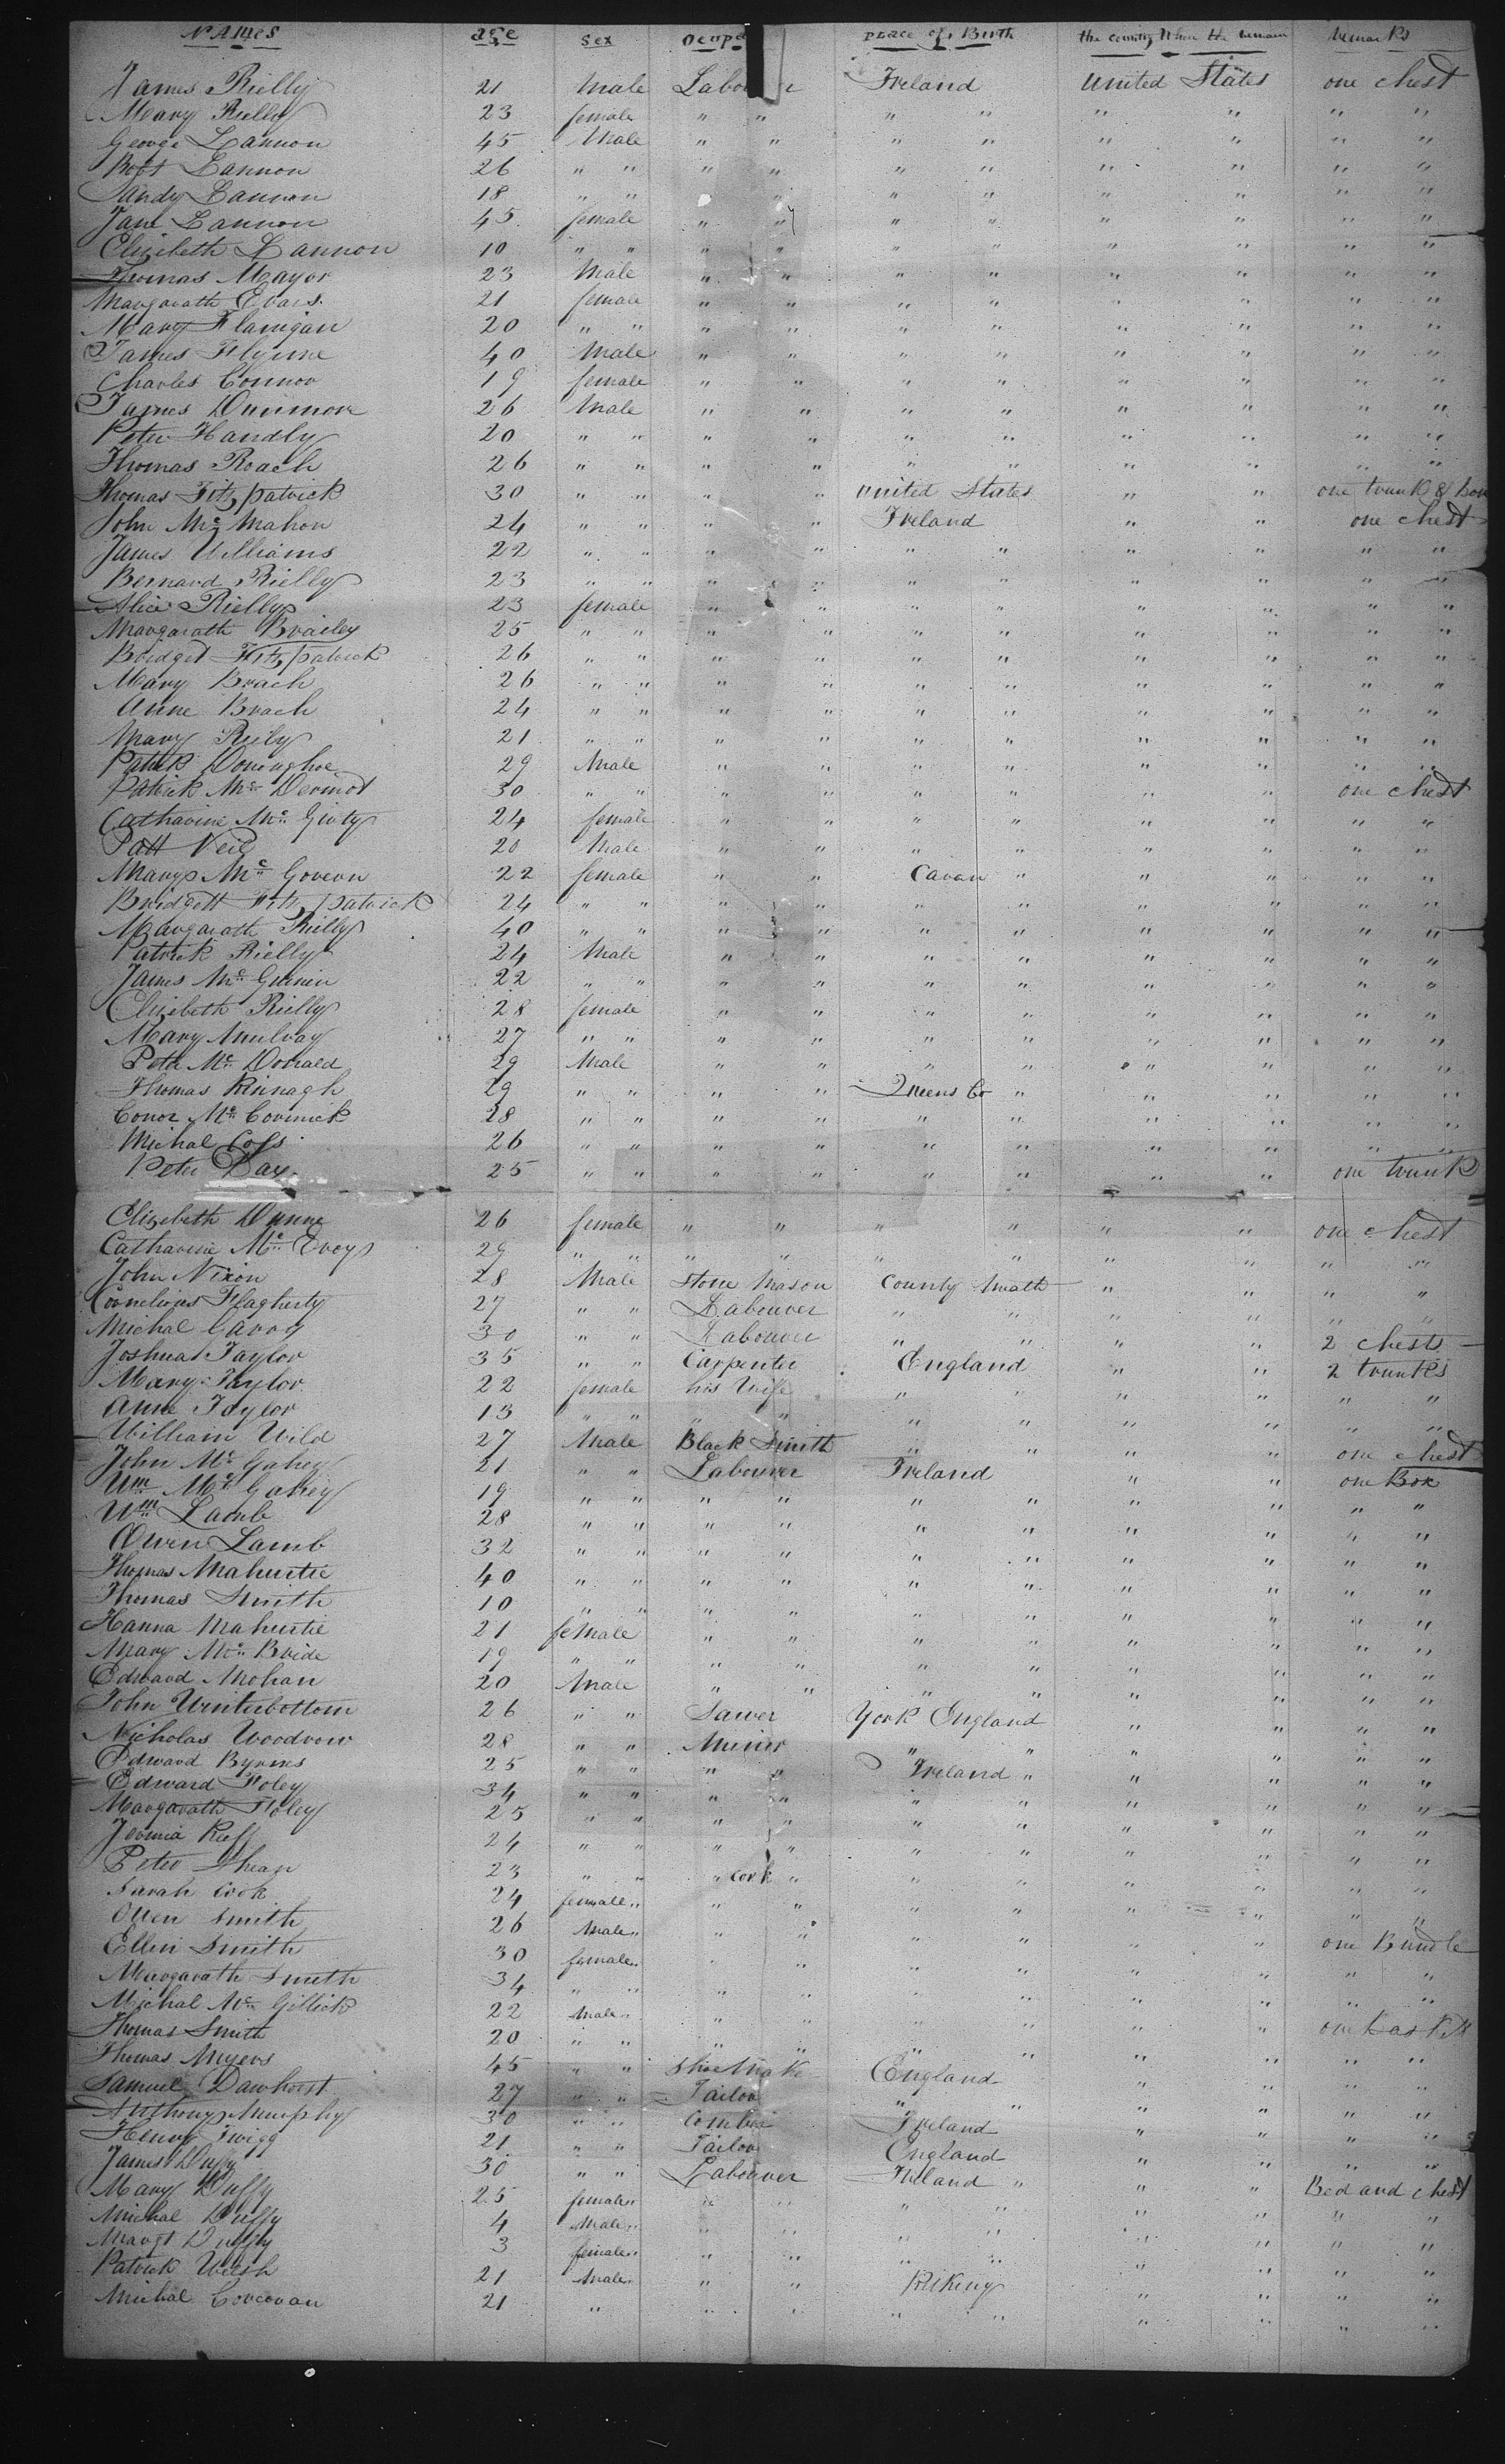 Names age Sex Ocupa place of Birth the country Where the remain Remarks
James Rielly 21 Male Labou r Ireland United States one chest
Mary Rielly 23 female " " " " " " " "
George Lannon 45 Male " " " " " " " "
Robt Lannon 26 " " " " " " " " " "
Sandy Lannon 18 " " " " " " " " "
Jane Lannon 45 female " " " " " " " "
Elizibeth Lannon 10 " " " " " " " " " "
Thomas Mayor 23 Male " " " " " " " "
Margarath Evars 21 female " " " " " " " "
Mary Flanigan 20 " " " " " " " " " "
James Flynne 40 Male " " " " " " " "
Charles Connor 19 female " " " " " " " "
James Dunmore 26 Male " " " " " " " "
Peter Handly 20 " " " " " " " " " "
Thomas Roach 26 " " " " " " " " " "
Thomas Fitzpatrick 30 " " " " United States " " one trunk & box
John Mc Mahon 24 " " " " Ireland " " one chest
James Williams 22 " " " " " " " " " "
Bernard Rielly 23 " " " " " " " " " "
Alice Rielly 23 female " " " " " " " "
Margarath Brailey 25 " " " " " " " " " "
Bridget Fitzpatrick 26 " " " " " " " " " "
Mary Brach 26 " " " " " " " " " "
Anne Brach 24 " " " " " " " " " "
Mary Reily 21 " " " " " " " " " "
Patrick Donoughoe 29 Male " " " " " " " "
Patrick Mc Dermot 30 " " " " " " " " one chest
Catharine Mc Girty 24 female " " " " " " " "
Patt Neil 20 Male " " " " " " " "
Mary Mc Govern 22 female " " Cavan " " " " "
Bridgett Fitzpatrick 24 " " " " " " " " " "
Margarath Rielly 40 " " " " " " " " " "
Patrick Rielly 24 Male " " " " " " " "
James Mc 22 " " " " " " " " " "
Elizibeth Rielly 28 female " " " " " " " "
Mary Mulvay 27 " " " " " " " " " "
Peter Mc Donald 29 Male " " " " " " " "
Thomas Kinnagh 29 " " " " Queens Co " " " " "
Conor Mc Cormick 28 " " " " " " " " " "
Michal Coss 26 " " " " " " " " " "
Peter Day 25 " " " " " " " " one trunk
Elizibeth Dunne 26 female " " " " " " one chest
Catharine Mc Evoy 29 " " " " " " " " " "
John Nixon 28 Male Stone Mason County Meath " " " "
Cornelious Flagherty 27 " " Labourer " " " " " "
Michal Garry 30 " " Labourer " " " " 2 chests
Joshua Taylor 35 " " Carpenter England " " 2 trunks
Mary Taylor 22 female his Wife " " " " " "
Anne Taylor 13 " " " " " " " " " "
William Wild 27 Male Black Smith " " " " one chest
John Mc Gahey 21 " " Labourer Ireland " " one Box
Wm Mc Gahey 19 " " " " " " " " " "
Wm Lamb 28 " " " " " " " " " "
Owen Lamb 32 " " " " " " " " " "
Thomas Mahurtie 40 " " " " " " " " " "
Thomas Smith 10 " " " " " " " " " "
Hanna Mahurtie 21 female " " " " " " " "
Mary Mc Bride 19 " " " " " " " " " "
Edward Mohan 20 Male " " " " " " " "
John Winterbottom 26 " " Sawer York England " " " "
Nicholas Woodrow 28 " " Miner " " " " " "
Edward Byrnes 25 " " " " Ireland " " " " "
Edward Foley 34 " " " " " " " " " "
Margarath Foley 25 " " " " " " " " " "
Jermia Keeff 24 " " " " " " " " " "
Peter Shean 23 " " " Cork " " " " " " "
Sarah Cook 24 female " " " " " " " " "
Owen Smith 26 Male " " " " " " " one Bundle
Ellin Smith 30 female " " " " " " " " "
Margarath Smith 34 " " " " " " " " " "
Michal Mc Gillick 22 Male " " " " " " " one basket
Thomas Smith 20 " " " " " " " " " "
Thomas Myers 45 " " Shoe Make England " " " "
Samuel Dawhorst 27 " " Tailor " " " " " "
Anthony Murphy 30 " " Comber Ireland " " " "
Henry Twigg 21 " " Tailor England " " " "
James Duffy 30 " " Labourer Ireland " " " Bed and chest
Mary Duffy 25 female " " " " " " " " "
Michal Duffy 4 Male " " " " " " " " "
Margt Duffy 3 female " " " " " " " " "
Patrick Welsh 21 Male " " " Kilkeny " " " "
Michal Corcoran 21 " " " " " " " " "